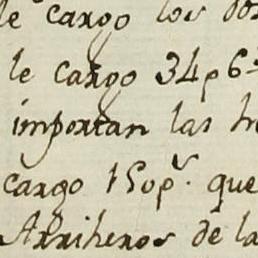 le cargo los dos
le cargo 34p 6
importan las
cargo 150p.s que
Arriheros de la